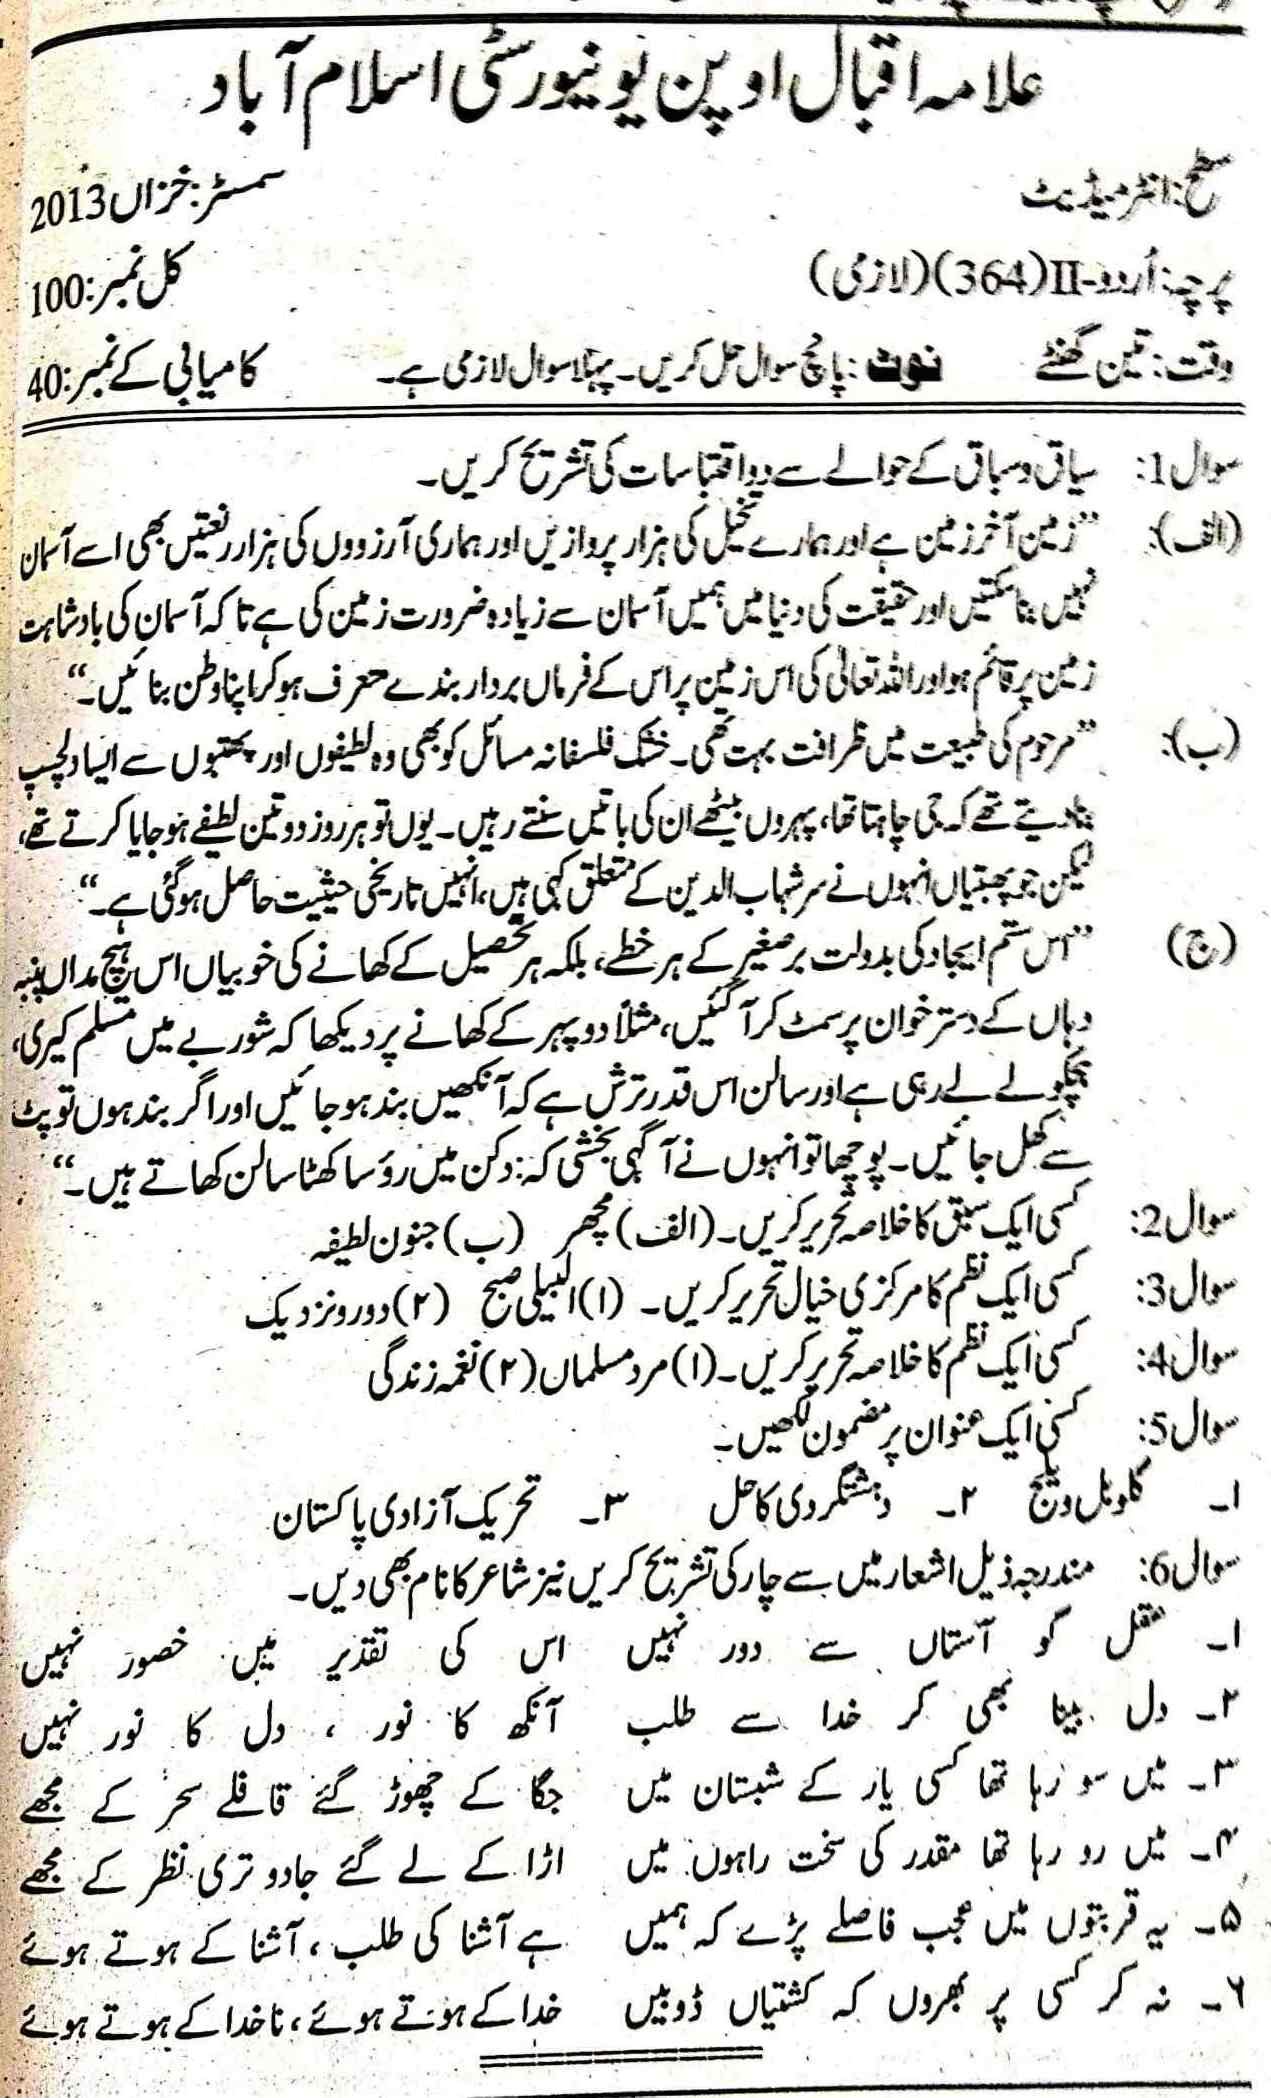 علامہ اقبال اوپن یونیورسٹی اسلام آباد
سطح: انٹرمیڈیٹ سمسٹر: خزاں 2013
پرچہ: اُردو-II (364) (لازمی) کل نمبر: 100
وقت: تین گھنٹے نوٹ: پانچ سوال حل کریں۔ پہلا سوال لازمی ہے۔ کامیابی کے نمبر: 40
سوال 1: سیاق و سباق کے حوالے سے دو اقتباسات کی تشریح کریں۔
(الف): ”زمین آخر زمین ہے اور ہمارے تخیل کی ہزار پروازیں اور ہماری آرزووں کی ہزار رفعتیں بھی اسے آسمان
نہیں بنا سکتیں اور حقیقت کی دنیا میں ہمیں آسمان سے زیادہ ضرورت زمین کی ہے تاکہ آسمان کی بادشاہت
زمین پر قائم ہو اور اللہ تعالیٰ کی اس زمین پر اس کے فرماں بردار بندے معرف ہو کر اپنا وطن بنائیں۔“
(ب): ”مرحوم کی طبیعت میں ظرافت بہت تھی۔ خشک فلسفانہ مسائل کو بھی وہ لطیفوں اور پھبتیوں سے ایسا دلچسپ
بنا دیتے تھے کہ جی چاہتا تھا، پہروں بیٹھے ان کی باتیں سنتے رہیں۔ یوں تو ہر روز دو تین لطیفے ہو جایا کرتے تھے،
لیکن جو پھبتیاں انہوں نے سر شہاب الدین کے متعلق کہی ہیں، انہیں تاریخی حیثیت حاصل ہو گئی ہے۔“
(ج) ”اس ستم ایجاد کی بدولت برصغیر کے ہر خطے، بلکہ ہر تحصیل کے کھانے کی خوبیاں اس ہیچ مداں پنبہ
دہاں کے دستر خوان پر سمٹ کر آ گئیں، مثلاً دوپہر کے کھانے پر دیکھا کہ شوربے میں مسلم کیری،
ہچکولے لے رہی ہے اور سالن اس قدر ترش ہے کہ آنکھیں بند ہو جائیں اور اگر بند ہوں تو پٹ
سے کھل جائیں۔ پوچھا تو انہوں نے آگہی بخشی کہ: دکن میں رؤسا کھٹا سالن کھاتے ہیں۔“
سوال 2: کسی ایک سبق کا خلاصہ تحریر کریں۔ (الف) مچھر (ب) جنون لطیفہ
سوال 3: کسی ایک نظم کا مرکزی خیال تحریر کریں۔ (۱) البیلی صبح (۲) دور و نزدیک
سوال 4: کسی ایک نظم کا خلاصہ تحریر کریں۔ (۱) مرد مسلماں (۲) نغمہ زندگی
سوال 5: کسی ایک عنوان پر مضمون لکھیں۔
۱۔ گلوبل ویلج ۲۔ دہشتگردی کا حل ۳۔ تحریک آزادی پاکستان
سوال 6: مندرجہ ذیل اشعار میں سے چار کی تشریح کریں نیز شاعر کا نام بھی دیں۔
۱۔ عقل گو آستاں سے دور نہیں اس کی تقدیر میں حضور نہیں
۲۔ دل بینا بھی کر خدا سے طلب آنکھ کا نور ، دل کا نور نہیں
۳۔ میں سو رہا تھا کسی یار کے شبستان میں جگا کے چھوڑ گئے قافلے سحر کے مجھے
۴۔ میں رو رہا تھا مقدر کی سخت راہوں میں اڑا کے لے گئے جادو تری نظر کے مجھے
۵۔ یہ قربتوں میں عجب فاصلے پڑے کہ ہمیں ہے آشنا کی طلب ، آشنا کے ہوتے ہوئے
۶۔ نہ کر کسی پر بھروں کہ کشتیاں ڈوبیں خدا کے ہوتے ہوئے ، ناخدا کے ہوتے ہوئے